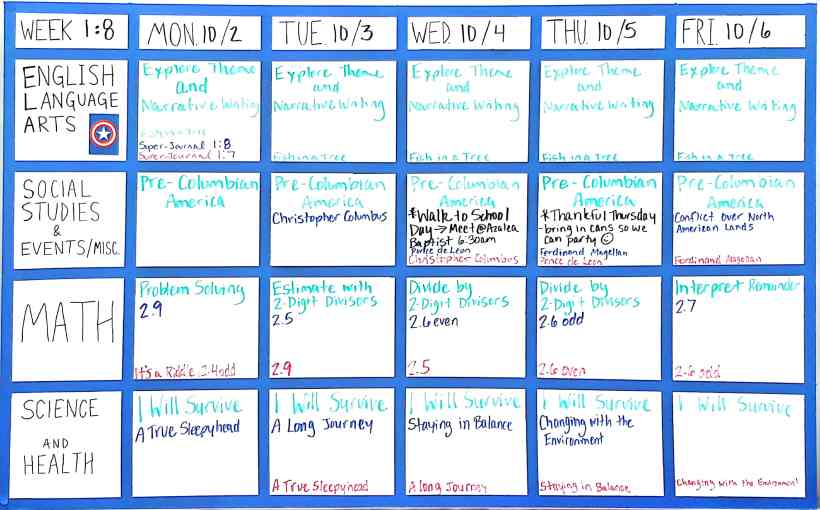 WEEK 1:8
MON. 10/2
TUE. 10/3
WED. 10/4
THU. 10/5
FRI. 10/6
ENGLISH
LANGUAGE
ARTS
Explore Theme
and
Narrative Writing
Fish in a Tree
Super-Journal 1:8
Super-Journal 1:7
Explore Theme
and
Narrative Writing
Fish in a Tree
Explore Theme
and
Narrative Writing
Fish in a Tree
Explore Theme
and
Narrative Writing
Fish in a Tree
Explore Theme
and
Narrative Writing
Fish in a Tree
SOCIAL
STUDIES
&
EVENTS/MISC.
Pre-Columbian
America
Pre-Columbian
America
Christopher Columbus
Pre-Columbian
America
*Walk to School
Day → Meet @ Azalea
Baptist 6:30am
Ponce de Leon
Christopher Columbus
Pre-Columbian
America
*Thankful Thursday
-bring in cans so we
can party ☺
Ferdinand Magellan
Ponce de Leon
Pre-Columbian
America
Conflict Over North
American Lands
Ferdinand Magellan
MATH
Problem Solving
2.9
It's a Riddle 2.4 odd
Estimate with
2-Digit Divisors
2.5
2.9
Divide by
2-Digit Divisors
2.6 even
2.5
Divide by
2-Digit Divisors
2.6 odd
2.6 even
Interpret Remainder
2.7
2.6 odd
SCIENCE
AND
HEALTH
I Will Survive
A True Sleepyhead
I Will Survive
A Long Journey
A True Sleepyhead
I Will Survive
Staying in Balance
A Long Journey
I Will Survive
Changing with the
Environment
Staying in Balance
I Will Survive
Changing with the Environment